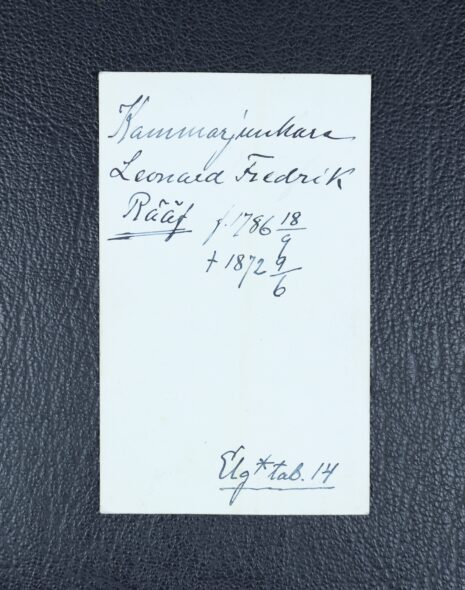 Kammarjunkare
Leonard Fredrik
Rääf f. 1786 18/9
† 1872 9/6
Elg* tab. 14